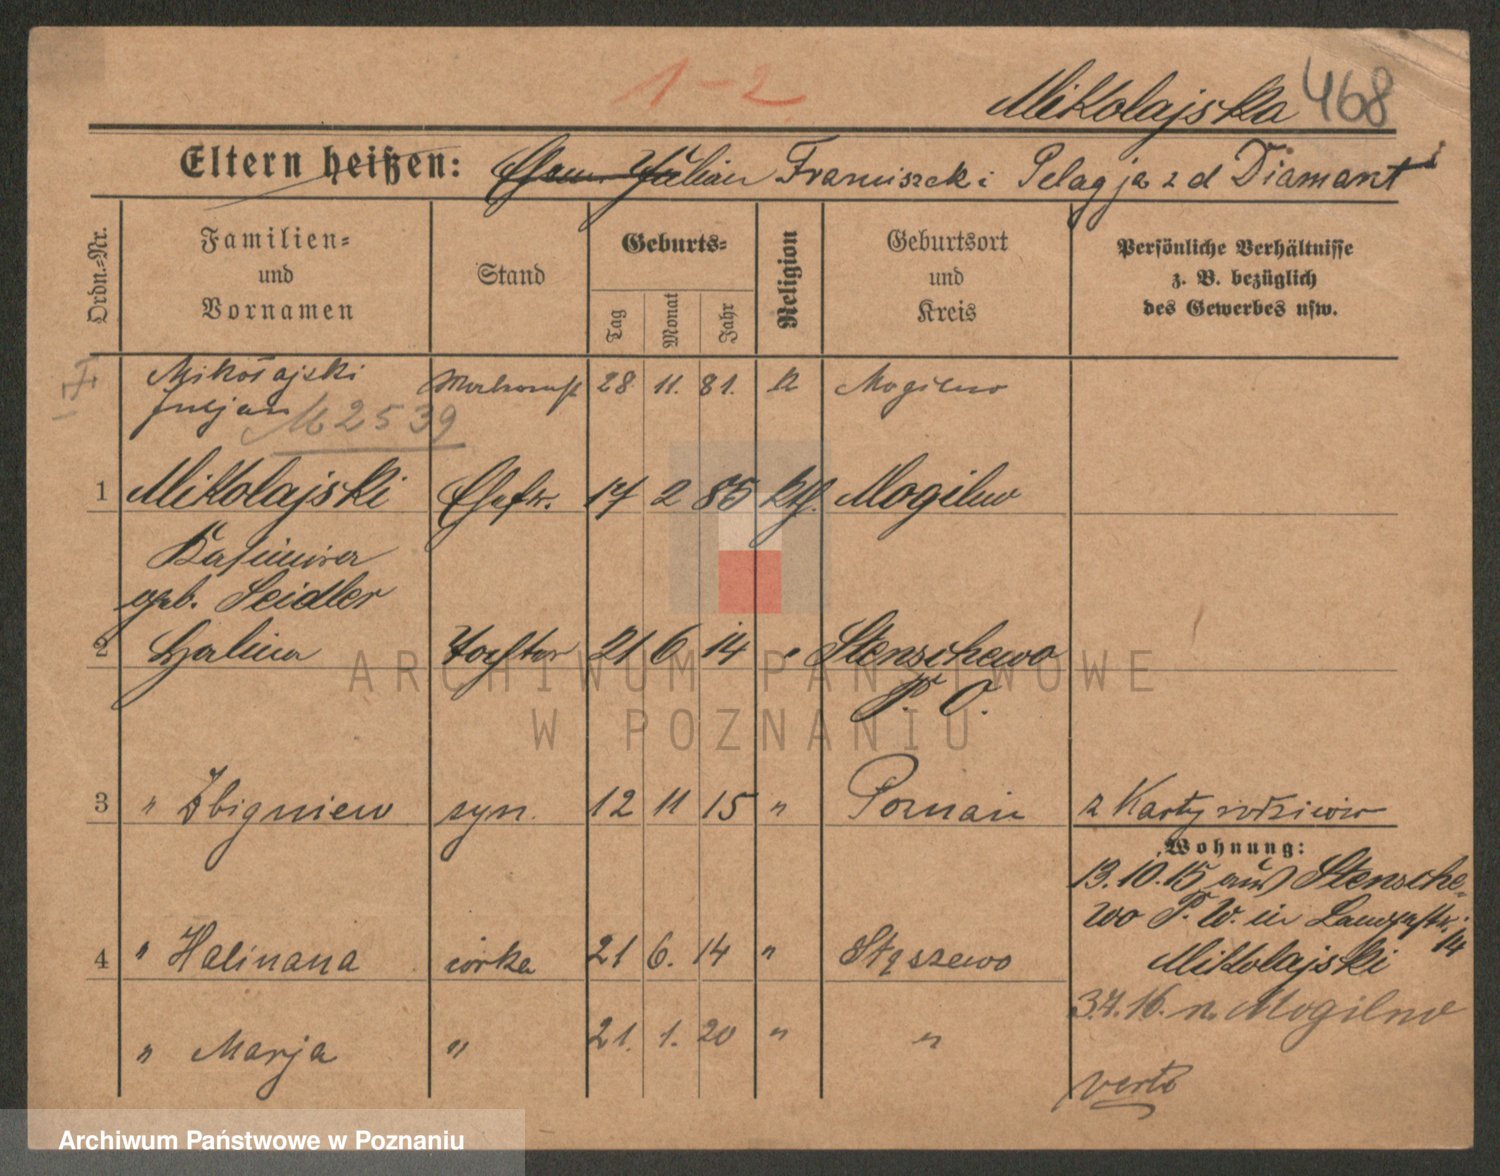 1-2
Mikolajska 468
Eltern heißen: Ehem. Julian Franciszek i Pelagja z d Diamant
Ordn.=Nr.
Familien=
und
Vornamen
Stand
Geburts=
Tag
Monat
Jahr
Religion
Geburtsort
und
Kreis
Persönliche Verhältnisse
z. B. bezüglich
des Gewerbes usw.
Mikołajski 28 11. 81. K Mogilno
Juljan M 2539
1 Mikolajski Ehefr. 17 2 85 kth. Mogilno
Kasimira
geb. Seidler
2 Halina Tochter 21 6 14 " Stenschewo
P. O.
3 " Zbigniew syn. 12 11 15 " Poznań z Karty rodziców
Wohnung:
13.10.15 aus Stensche-
wo P. W. in
14
4 " Halinana córka 21 6. 14 " Stęszewo
Mikolajski
3.7.16. n. Mogilno
" Marja " 21. 1. 20 " "
verte
ARCHIWUM PAŃSTWOWE
W POZNANIU
Archiwum Państwowe w Poznaniu